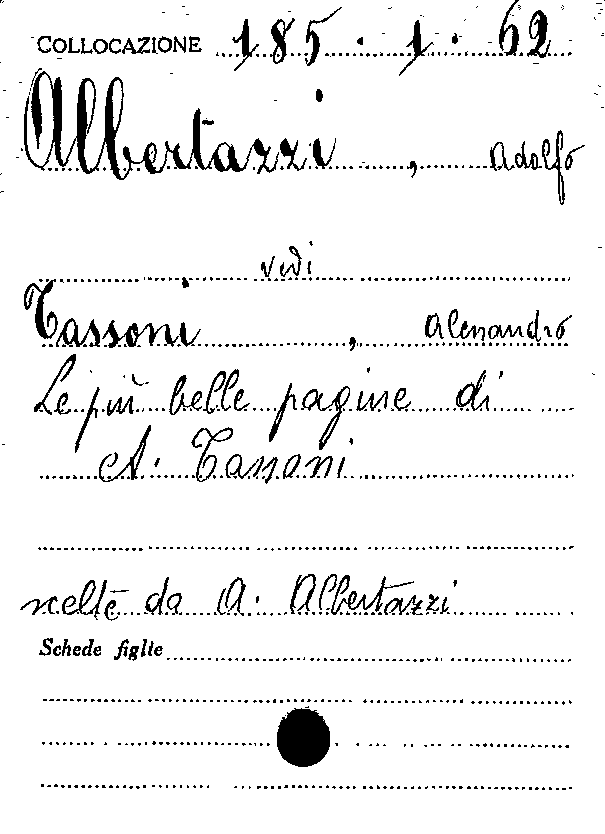 COLLOCAZIONE 185.1.62
Albertazzi, Adolfo
vedi
Tassoni, Alessandro
Le più belle pagine di
A. Tassoni
scelte da A. Albertazzi
Schede figlie